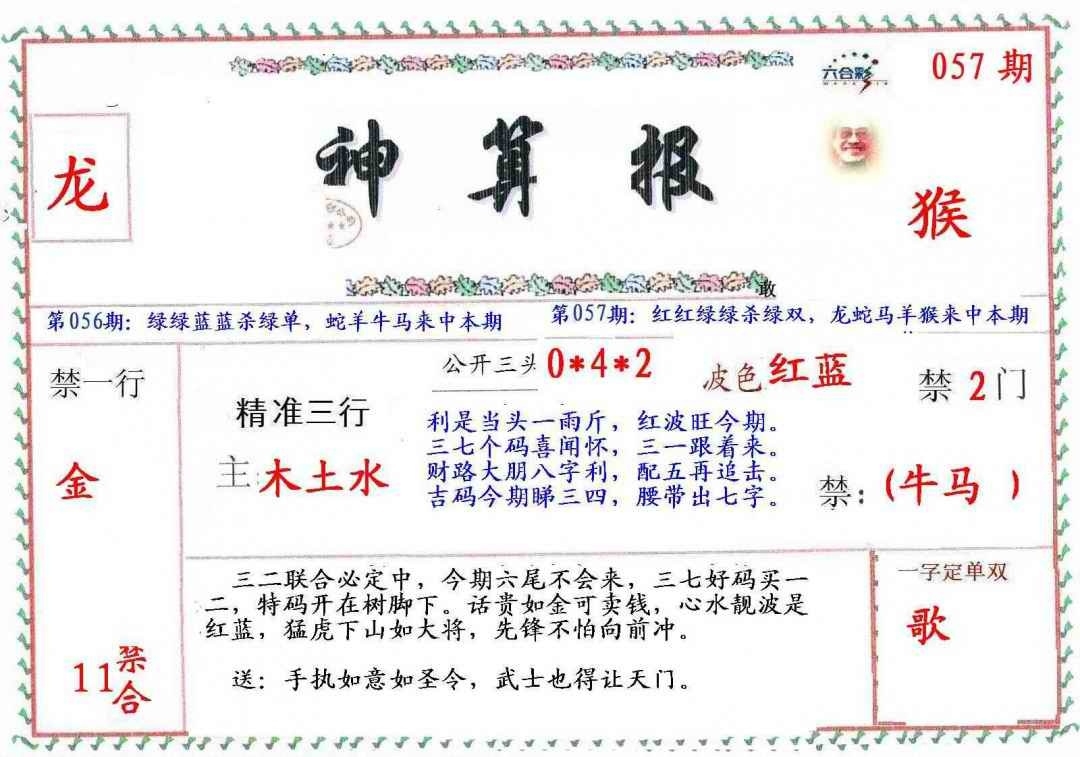 六合彩
057 期
龙
神算报
猴
敢
第056期：绿绿蓝蓝杀绿单，蛇羊牛马来中本期
第057期：红红绿绿杀绿双，龙蛇马羊猴来中本期
禁一行
金
11禁合
精准三行
主:木土水
公开三头 0*4*2
波色 红蓝
利是当头一雨斤，红波旺今期。
三七个码喜闻怀，三一跟着来。
财路大朋八字利，配五再追击。
吉码今期睇三四，腰带出七字。
禁 2 门
禁：（牛马 ）
三二联合必定中，今期六尾不会来，三七好码买一
二，特码开在树脚下。话贵如金可卖钱，心水靓波是
红蓝，猛虎下山如大将，先锋不怕向前冲。
送：手执如意如圣令，武士也得让天门。
一字定单双
歌